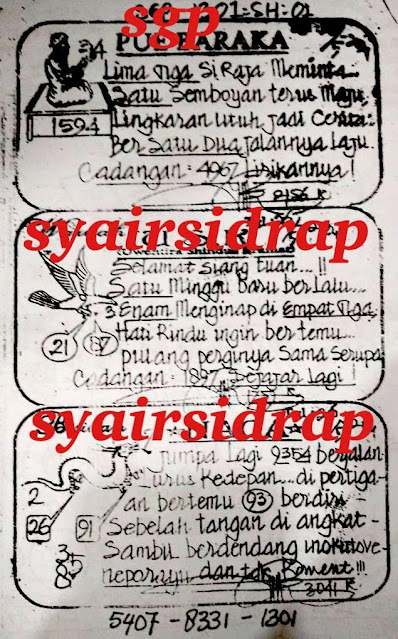 SH-01
sgp
ARAKA
Lima Tiga Si Raja Meminta
Satu Semboyan terus Maju
1594
Lingkaran utuh jadi Cerita
Ber Satu Dua Jalannya Laju
Cadangan: 4967 Lirikannya!
2156
syairsidrap
Selamat siang tuan...!!
Satu Minggu baru berlalu
3 Enam Menginap di Empat Tiga
Hati Rindu ingin bertemu
21 87
pulang perginya Sama Serupa
Cadangan: 1897 Lagi!
syairsidrap
Jumpa lagi 9354 berjalan
Lurus kedepan... di pertiga-
2
an bertemu 93 berdiri
26 91
Sebelah tangan di angkat-
Sambil berdendang
dan tdk Koment!!!
3041
5407-8331-1301